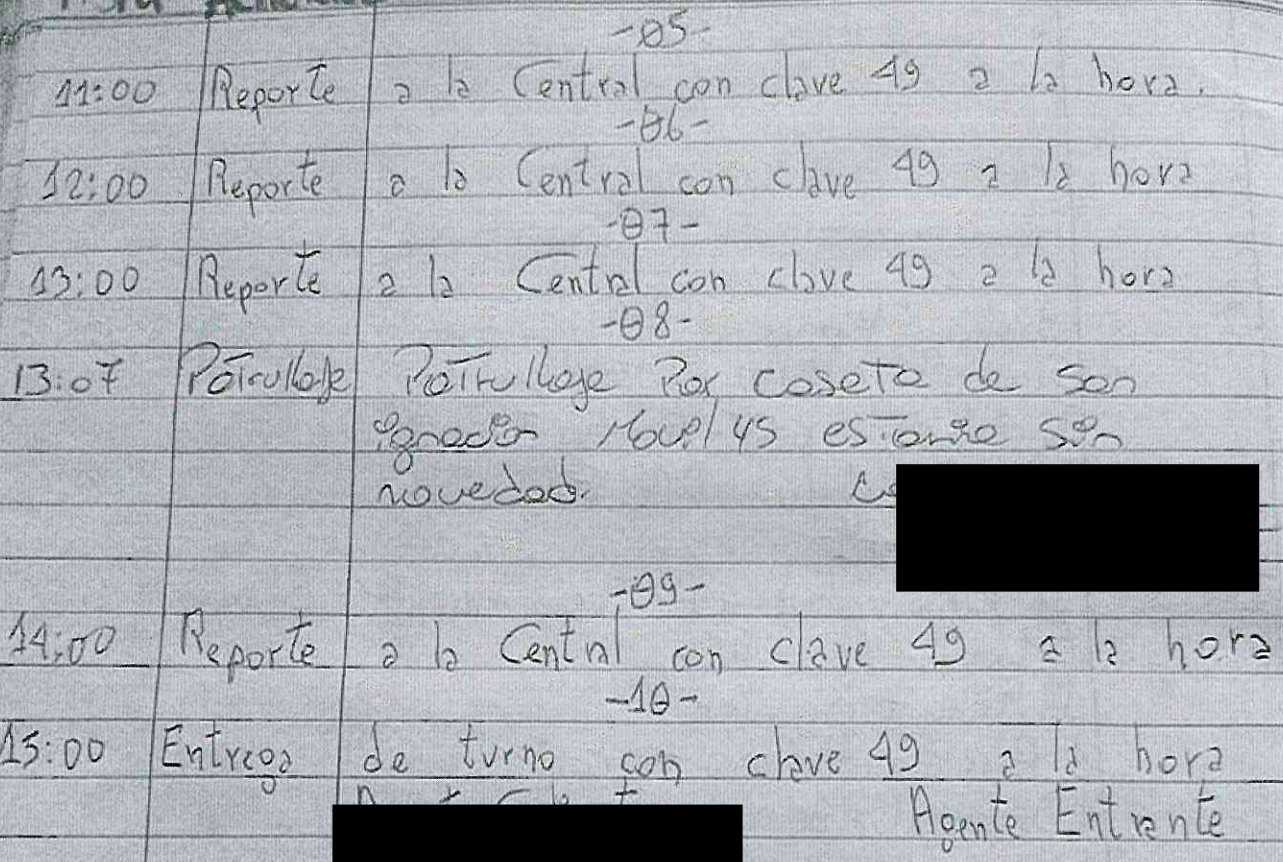 -05-
11:00 Reporte a la Central con clave 49 a la hora.
-06-
12:00 Reporte a la Central con clave 49 a la hora
-07-
13:00 Reporte a la Central con clave 49 a la hora
-08-
13:07 Patrullaje Patrullaje Por caseta de San
Ignacio Movel 45 estando sin
novedad.
-09-
14:00 Reporte a la Central con clave 49 a la hora
-10-
15:00 Entrega de turno con clave 49 a la hora
Agente Entrante